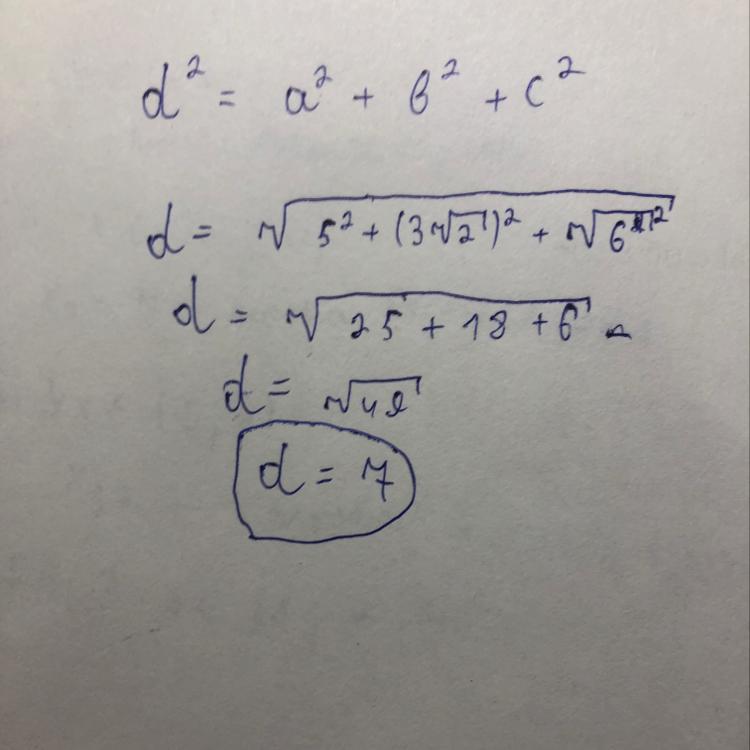 d² = a² + b² + c²
d = √(5² + (3√2)² + √6²)
d = √(25 + 18 + 6)
d = √49
d = 7